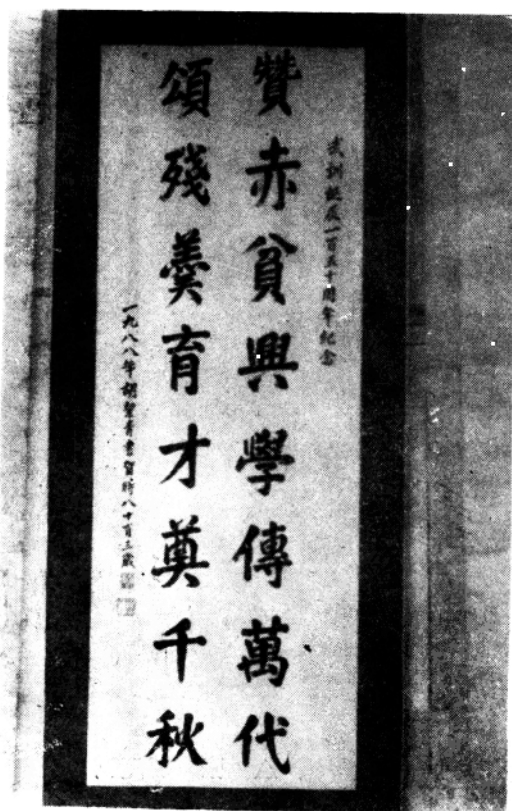 武訓誕辰一百五十周年紀念
贊赤貧興學傳萬代
頌殘羹育才奠千秋
一九八八年胡 青書賀時八十有三歲